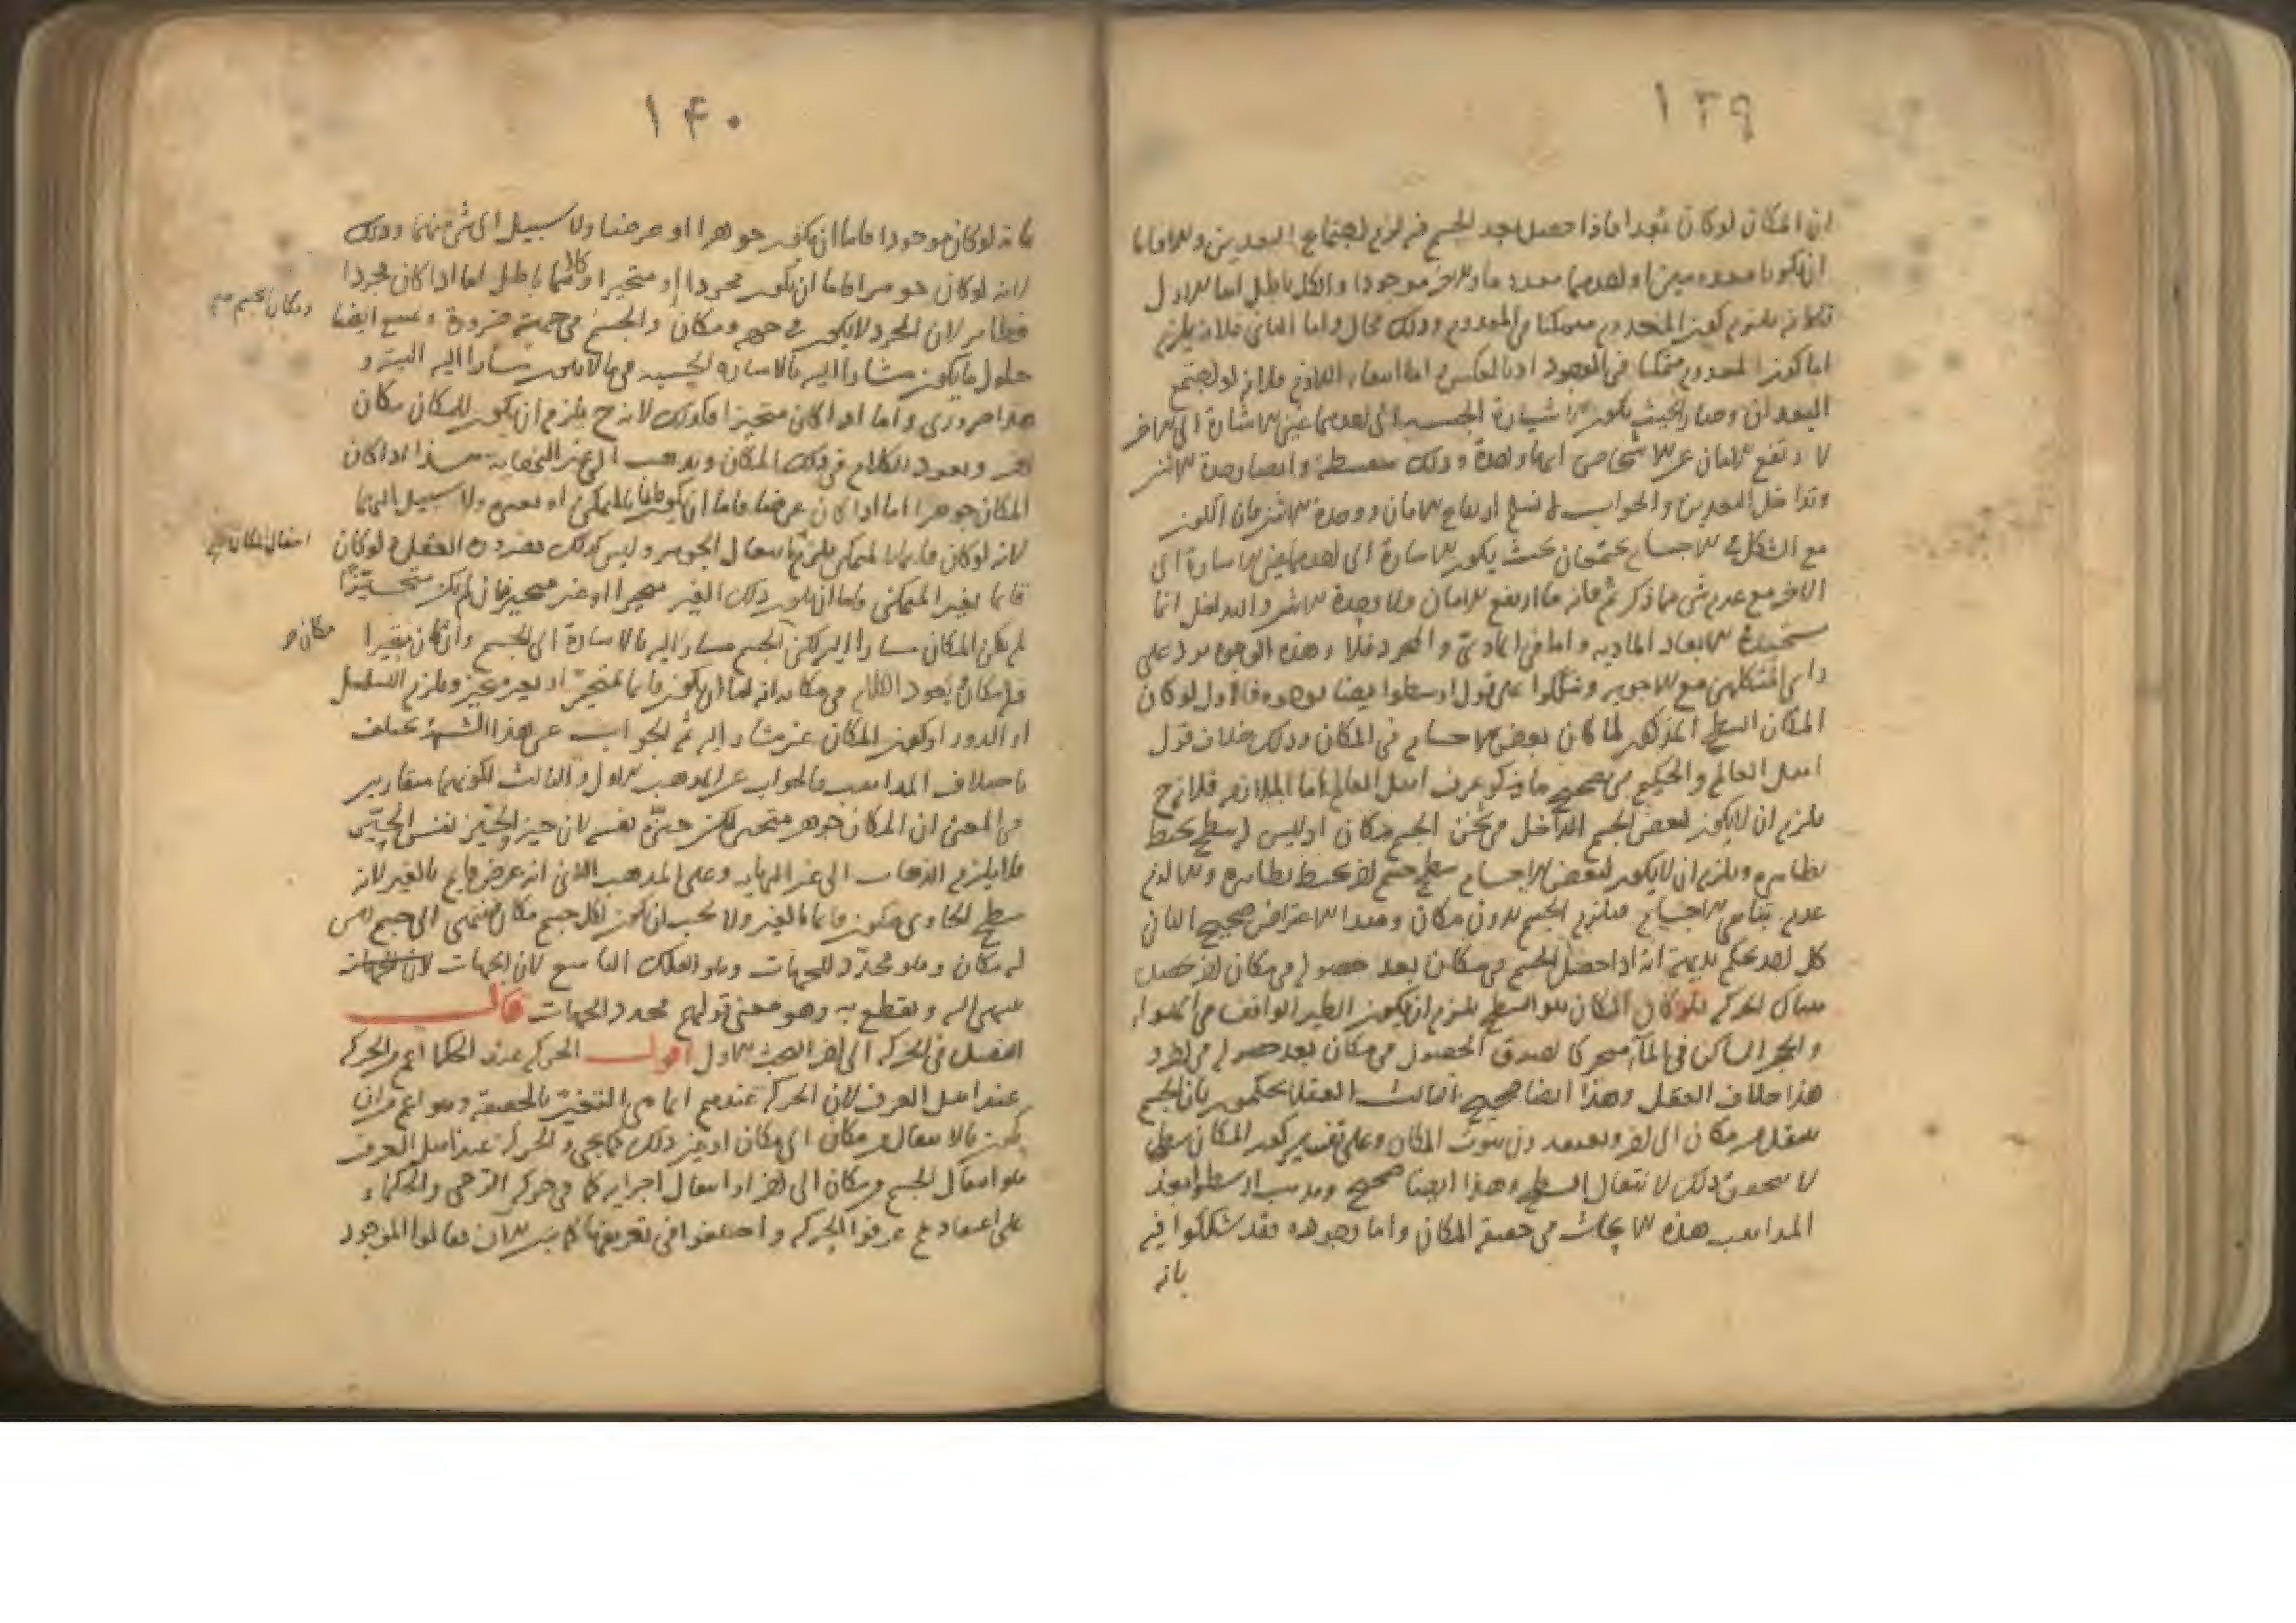 ١٣٩
ان المكان لوكان بعدا فاذا حصل بعد الجسم فيه لزم اجتماع البعدين والا فاما
ان يكونا معدومين او احدهما معدوما والاخر موجودا والكل باطل اما الاول
فلانه يلزم كون المعدوم متمكنا في المعدوم وذلك محال واما الثاني فلانه يلزم
اما كون المعدوم متمكنا في الموجود او بالعكس و اما اللازم فلانه لو اجتمع
البعدان وصار بحيث يكون الاشارة الحسية الى احدهما عين الاشارة الى الاخر
لارتفع الامان عن الاشخاص ايها واحدة وذلك سفسطة وايضا وحدة الاثنين
وتداخل البعدين والجواب لا نسلم ارتفاع الامان ووحدة الاثنين فان اللون
مع الشكل في الاجسام يجتمعان بحيث يكون الاشارة الى احدهما عين الاشارة الى
الاخر مع عدم شي مما ذكرتم فانه ما ارتفع الامان ولا وحدة الاثنين والتداخل انما
يستحيل في الابعاد المادية واما في المادي و المجرد فلا وهذه الوجوه ترد على
راي مع الاجوبة وشككوا على قول ارسطوا ايضا بوجوه فالاول لوكان
المكان السطح المذكور لما كان لبعض الاجسام في المكان وذلك خلاف قول
اهل العالم والحكيم في تصحيح ما يذكر عرف اهل العالم اما الملازمة فلانه ح
يلزم ان لا يكون لبعض الجسم الداخل في ثخن الجسم مكان اذ ليس له سطح محيط
بظاهره ويلزم ان لا يكون لبعض الاجسام سطح جسم اخر محيط بظاهره والا لزم
عدم تناهي الاجسام فيلزم الجسم بدون مكان وهذا الاعتراض صحيح الثاني
كل احد يحكم بديهة انه اذا حصل الجسم في مكان بعد حصوله في مكان اخر حصل
هناك الحركة فلو كان المكان هو السطح يلزم ان يكون الطير الواقف في الهواء
والحجر الساكن في الماء متحركا لصدق الحصول في مكان بعد حصوله في اخر و
هذا خلاف العقل وهذا ايضا صحيح الثالث العقلا يحكمون بان الجسم
ينتقل من مكان الى اخر ثبوت المكان وعلى تقدير كون المكان سطحا
لا يتحقق ذلك لانتقال السطح وهذا ايضا صحيح ومذهب ارسطوا
المذاهب هذه الابحاث في حقيقة المكان واما وجوده فقد شككوا فيه
بانه
١۴٠
بانه لوكان موجودا فاما ان يكون جوهرا او عرضا ولا سبيل الى شي منهما وذلك
لانه لوكان جوهرا فاما ان يكون مجردا او متحيزا وكلاهما باطل اما اذا كان مجردا
فظاهر لان المجرد لا يكون في جهة ومكان والجسم في جهة ضرورة ويمتنع ايضا
حلول ما يكون مشارا اليه بالاشارة الحسية في ما لا يكون مشارا اليه البتة و
هذا ضروري واما اذا كان متحيزا فكذلك لانه ح يلزم ان يكون للمكان مكان
اخر ويعود الكلام في ذلك المكان ويذهب الى غير النهاية هذا اذا كان
المكان جوهرا اما اذا كان عرضا فاما ان يكون قائما بالمتمكن او بغيره ولا سبيل اليهما
لانه لوكان قائما بالمتمكن يلزم بانتقال الجوهر وليس كذلك ولوكان
قائما بغير المتمكن فاما ان يكون ذلك الغير متحيزا او غير متحيز فان لم يكن متحيزا
لم يكن المكان مشارا اليه لكن الجسم مشار اليه بالاشارة الى الجسم وان كان متحيزا
فله مكان يعود الكلام في مكانه انه اما ان يكون قائما بمتحيز او بغير متحيز ويلزم التسلسل
او الدور او كون المكان غير مشار اليه ثم الجواب عن هذا الشبهة يختلف
باختلاف المذاهب فالجواب عن المذهب الاول والثالث لكونهما متقاربين
في المعنى ان المكان جوهر متحيز لكن حيزه نفسه لان حيز الحيز نفس الحيز
فلا يلزم الذهاب الى غير النهاية وعلى المذهب الثاني انه عرض قايم بالغير لانه
سطح الحاوي فيكون قائما بالغير ولا يجب ان يكون لكل جسم مكان فينتهي الى جسم ليس
له مكان وهو محدد للجهات وهو الفلك التاسع لان الجهات
ينتهي اليه وينقطع به وهو معنى قولهم محدد الجهات قال
الفصل في الحركة الى اخر البحث الاول اقول الحركة عند الحكما اعم من الحركة
عند اهل العرف لان الحركة عندهم انما هي التغير بالحقيقة وهو اعم من ان
يكون بالانتقال من مكان الى مكان او بغير ذلك كما يجي و الحركة عند اهل العرف
هو انتقال الجسم من مكان الى اخر او انتقال اجزايه كما في حركة الرحى والحكماء
على اعتقادهم عرفوا الحركة واختلفوا في تعريفها فقالوا الموجود
ومكان الجسم
انتقال المكان
مكان